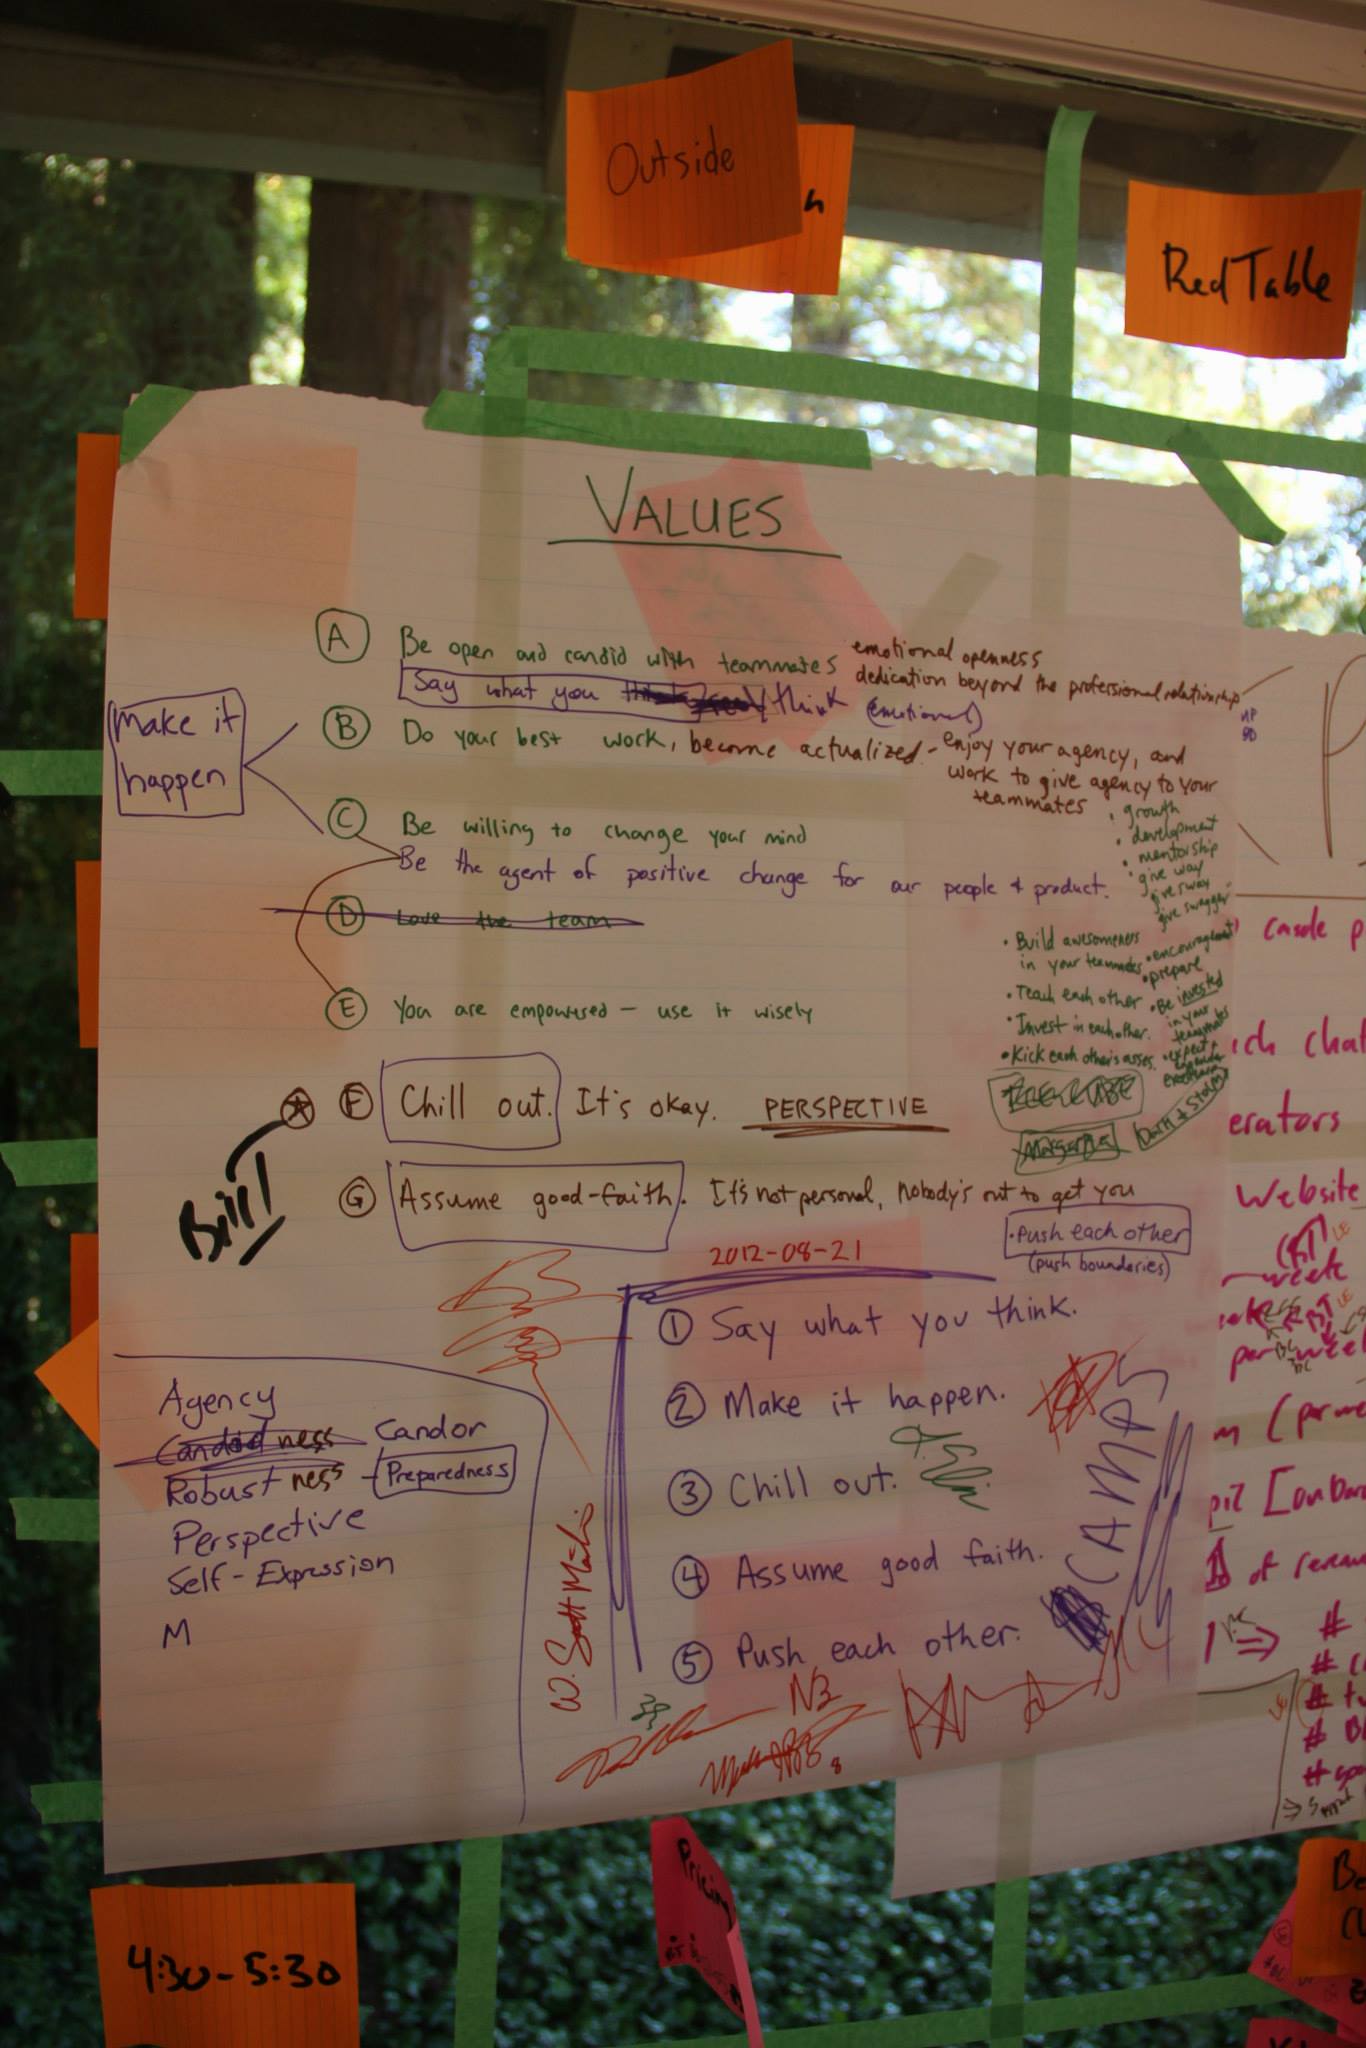 Outside
Red Table
VALUES
A Be open and candid with teammates
emotional openness
dedication beyond the professional relationship
Say what you think
(emotional)
Make it
happen
B Do your best work, become actualized - enjoy your agency, and
work to give agency to your
teammates
• growth
• development
• mentorship
• give way
give sway
give swagger
C Be willing to change your mind
Be the agent of positive change for our people + product.
D Love the team
E You are empowered — use it wisely
• Build awesomeness
in your teammates
• Teach each other
• Invest in each other.
• Kick each other's asses.
• encouragement
• prepare
• Be invested
in your
teammates
• expect
F Chill out. It's okay. PERSPECTIVE
Bill
G Assume good-faith. It's not personal, nobody's out to get you
• Push each other
(push boundaries)
2012-08-21
1 Say what you think.
2 Make it happen.
3 Chill out.
4 Assume good faith.
5 Push each other.
CAMPS
Agency
Candidness Candor
Robustness - Preparedness
Perspective
Self-Expression
M
W. Scott
erators
Website
week
4:30-5:30
Pricing